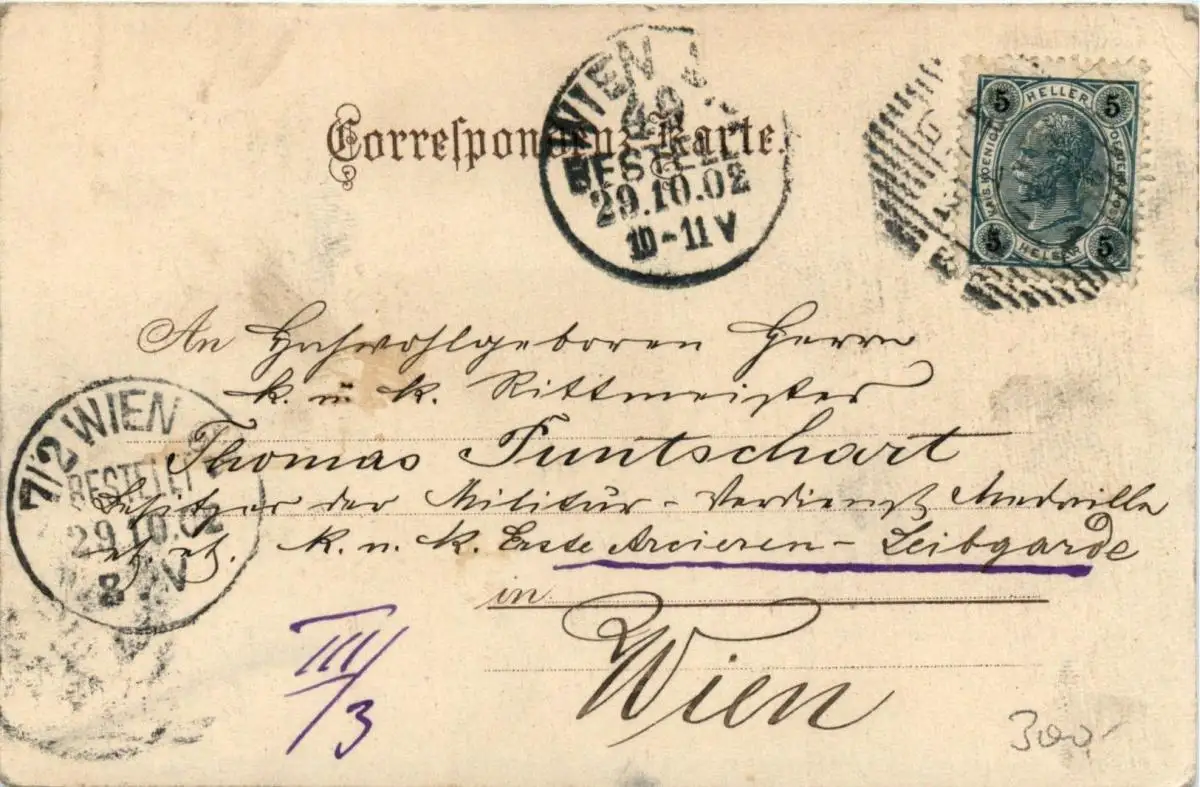 Correspondenz-Karte.
WIEN
49
BESTELLT
29.10.02
10-11 V
5 HELLER 5
KAIS. KOENIGL. OESTERR. POST
5 HELLER 5
An Hochwohlgeboren Herrn
k. u. k. Rittmeister
Thomas Funtschart
Besitzer der Militär-Verdienst Medaille
et. et. K. u. K. Erste Arcieren-Leibgarde
in
Wien
7/2 WIEN
BESTELLT
29.10.02
8 V
III/3
300,-